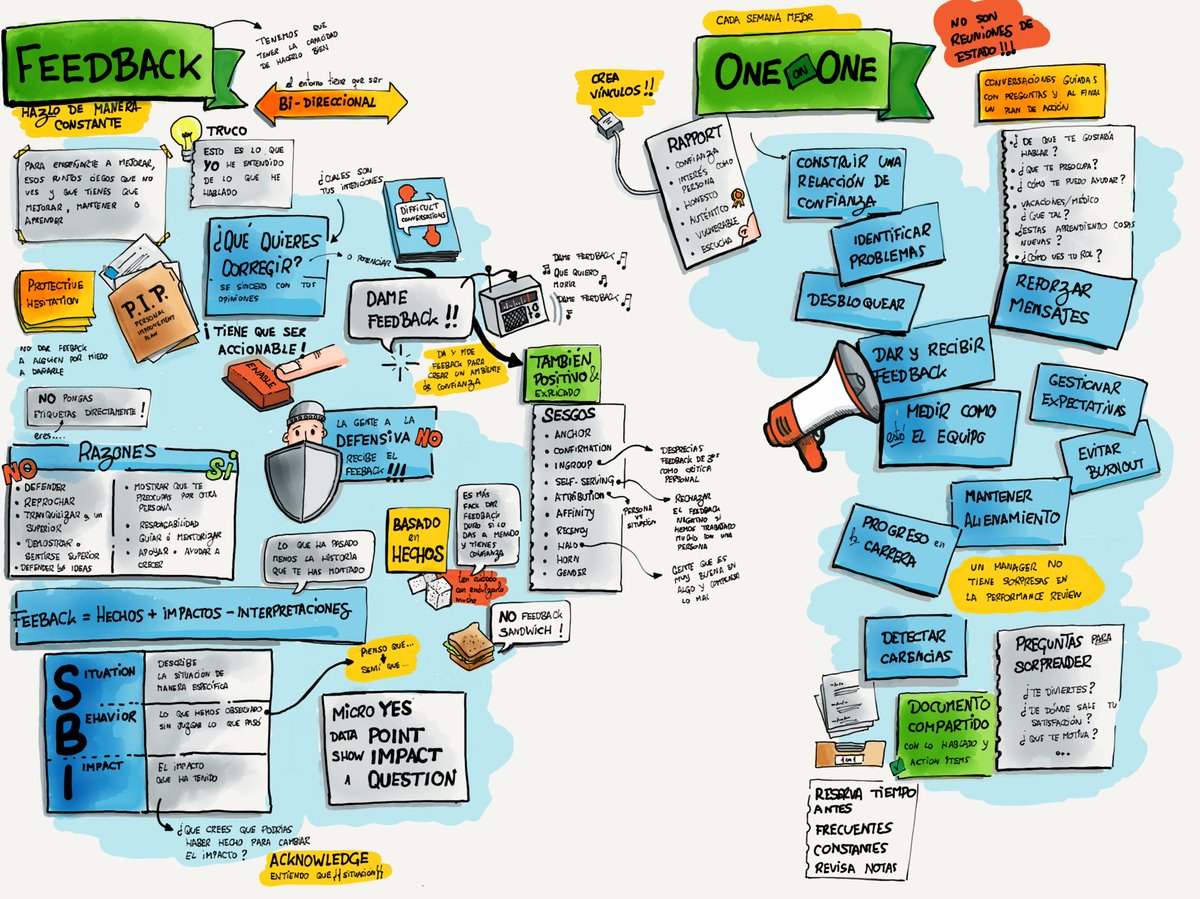 FEEDBACK
TENEMOS QUE
TENER LA CAPACIDAD
DE HACERLO BIEN
HAZLO DE MANERA
CONSTANTE
el entorno tiene que ser
BI-DIRECCIONAL
TRUCO
ESTO ES LO QUE
YO HE ENTENDIDO
DE LO QUE HE
HABLADO
PARA ENSEÑARTE A MEJORAR,
ESOS PUNTOS CIEGOS QUE NO
VES Y QUE TIENES QUE
MEJORAR, MANTENER O
APRENDER
¿CUALES SON
TUS INTENCIONES
DIFFICULT
CONVERSATIONS
¿QUÉ QUIERES
CORREGIR?
SE SINCERO CON TUS
OPINIONES
O POTENCIAR
PROTECTIVE
HESITATION
NO DAR FEEBACK
A ALGUIEN POR MIEDO
A DAÑARLE
P.I.P.
PERSONAL
IMPROVEMENT
PLAN
¡TIENE QUE SER
ACCIONABLE!
ENABLE
DAME
FEEDBACK!!
DAME FEEDBACK
QUE QUIERO
MORIR
DAME FEEDBACK
DA Y PIDE
FEEBACK PARA
CREAR UN AMBIENTE
DE CONFIANZA
TAMBIÉN
POSITIVO &
EXPLICADO
NO PONGAS
ETIQUETAS DIRECTAMENTE!
eres....
RAZONES
NO
SI
• DEFENDER
• REPROCHAR
• TRANQUILIZAR a un
SUPERIOR
• DEMOSTRAR o
SENTIRSE SUPERIOR
• DEFENDER tus IDEAS
• MOSTRAR QUE TE
PREOCUPAS POR OTRA
PERSONA
• RESPONSABILIDAD
• GUIAR O MENTORIZAR
• APOYAR o AYUDAR A
CRECER
LA GENTE A LA
DEFENSIVA NO
RECIBE EL
FEEBACK!!!
SESGOS
• ANCHOR
• CONFIRMATION
• INGROUP
• SELF-SERVING
• ATTRIBUTION
• AFFINITY
• RECENCY
• HALO
• HORN
• GENDER
DESPRECIAS
FEEDBACK DE 3ºS
COMO CRÍTICA
PERSONAL
RECHAZAR
EL FEEDBACK
NEGATIVO SI
HEMOS TRABAJADO
MUCHO CON UNA
PERSONA
PERSONA
VS
SITUACIÓN
GENTE QUE ES
MUY BUENA EN
ALGO Y COMPENSA
LO MAL
BASADO
en
HECHOS
ES MÁS
FACIL DAR
FEEDBACK
DURO SI LO
DAS A MENUDO
Y TIENES
CONFIANZA
ten cuidado
con endulzarlo
mucho
NO FEEDBACK
SANDWICH!
LO QUE HA PASADO
MENOS LA HISTORIA
QUE TE HAS MONTADO
FEEBACK = HECHOS + IMPACTOS - INTERPRETACIONES
SITUATION
DESCRIBE
LA SITUACIÓN DE
MANERA ESPECÍFICA
BEHAVIOR
LO QUE HEMOS OBSERVADO
SIN JUZGAR LO QUE PASÓ
IMPACT
EL IMPACTO
QUE HA TENIDO
PIENSO QUE...
SEMÍ QUE...
MICRO YES
DATA POINT
SHOW IMPACT
A QUESTION
¿QUE CREES QUE PODRÍAS
HABER HECHO PARA CAMBIAR
EL IMPACTO?
ACKNOWLEDGE
ENTIENDO QUE //SITUACION//
CADA SEMANA MEJOR
ONE ON ONE
NO SON
REUNIONES DE
ESTADO!!!
CREA
VÍNCULOS!!
RAPPORT
• CONFIANZA
• INTERÉS COMO
PERSONA
• HONESTO
• AUTÉNTICO
• VULNERABLE
• ESCUCHA
CONVERSACIONES GUIADAS
CON PREGUNTAS Y AL FINAL
UN PLAN DE ACCIÓN
• ¿DE QUE TE GUSTARÍA
HABLAR?
• ¿QUE TE PREOCUPA?
• ¿CÓMO TE PUEDO AYUDAR?
• VACACIONES/MÉDICO
¿QUE TAL?
• ¿ESTAS APRENDIENDO COSAS
NUEVAS?
• ¿CÓMO VES TU ROL?
CONSTRUIR UNA
RELACCIÓN DE
CONFIANZA
IDENTIFICAR
PROBLEMAS
DESBLOQUEAR
REFORZAR
MENSAJES
DAR Y RECIBIR
FEEDBACK
MEDIR COMO
está EL EQUIPO
GESTIONAR
EXPECTATIVAS
EVITAR
BURNOUT
MANTENER
ALIENAMIENTO
PROGRESO en
la CARRERA
UN MANAGER NO
TIENE SORPRESAS EN
LA PERFORMANCE REVIEW
DETECTAR
CARENCIAS
PREGUNTAS PARA
SORPRENDER
¿TE DIVIERTES?
¿DE DÓNDE SALE TU
SATISFACCIÓN?
¿QUE TE MOTIVA?
...
DOCUMENTO
COMPARTIDO
CON LO HABLADO Y
ACTION ITEMS
1on1
RESERVA TIEMPO
ANTES
FRECUENTES
CONSTANTES
REVISA NOTAS